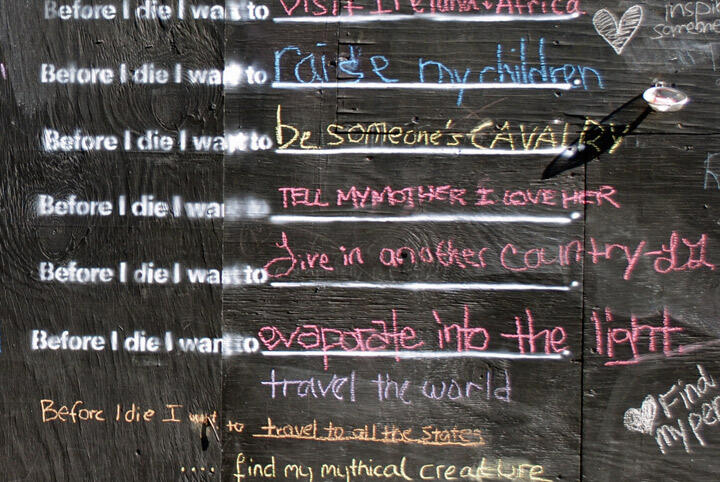 Before I die I want to visit Ireland + Africa
inspire
someone
Before I die I want to raise my children
Before I die I want to be someone's CAVALRY
Before I die I want to TELL MY MOTHER I LOVE HER
Before I die I want to Live in another country
Before I die I want to evaporate into the light
travel the world
Before I die I want to travel to all the states
Find
my
.... find my mythical creature